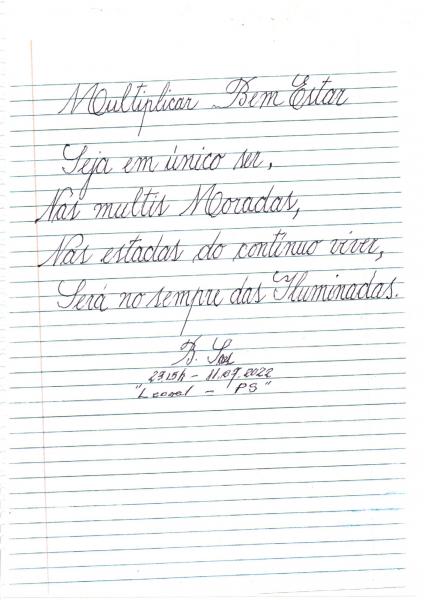 Multiplicar Bem Estar
Seja em único ser,
Nas multis Moradas,
Nas estadas do contínuo viver,
Será no sempre das Iluminadas.
B.
2315h - 11.09.2022
" - PS"